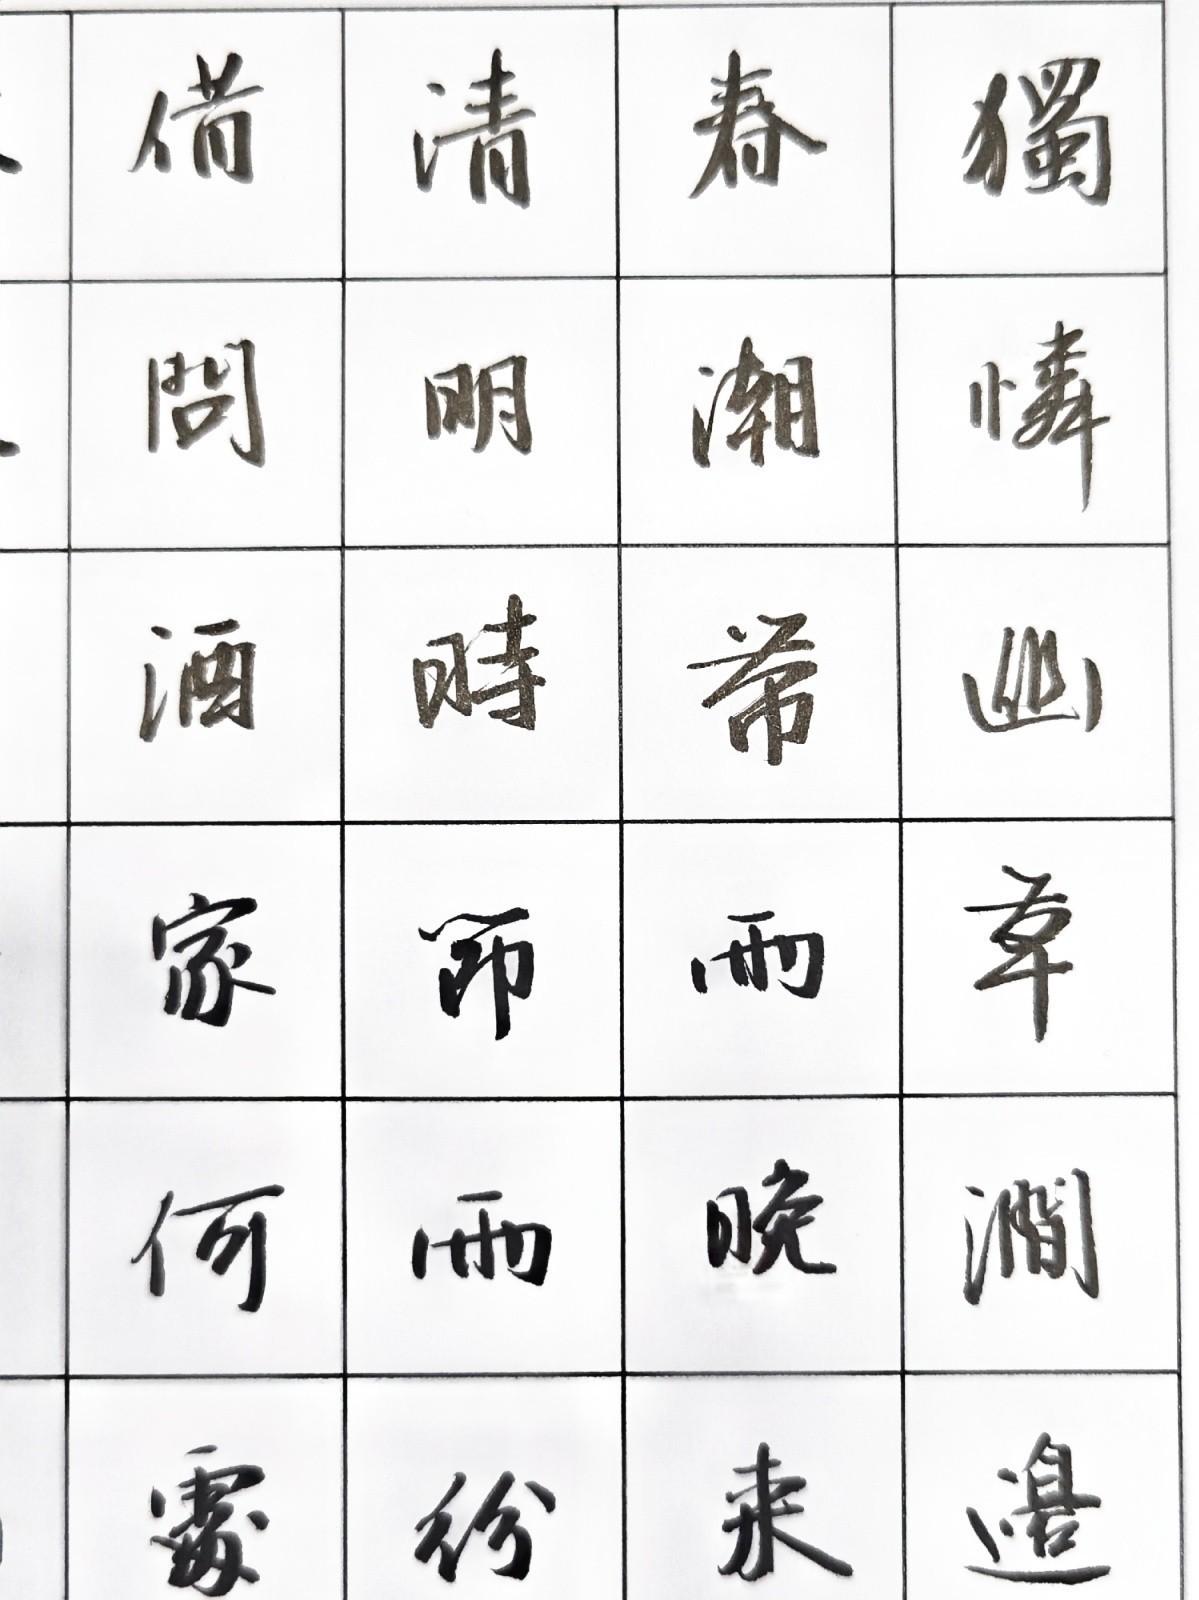 獨憐幽草澗邊
春潮帶雨晚来
清明時節雨紛
借問酒家何處